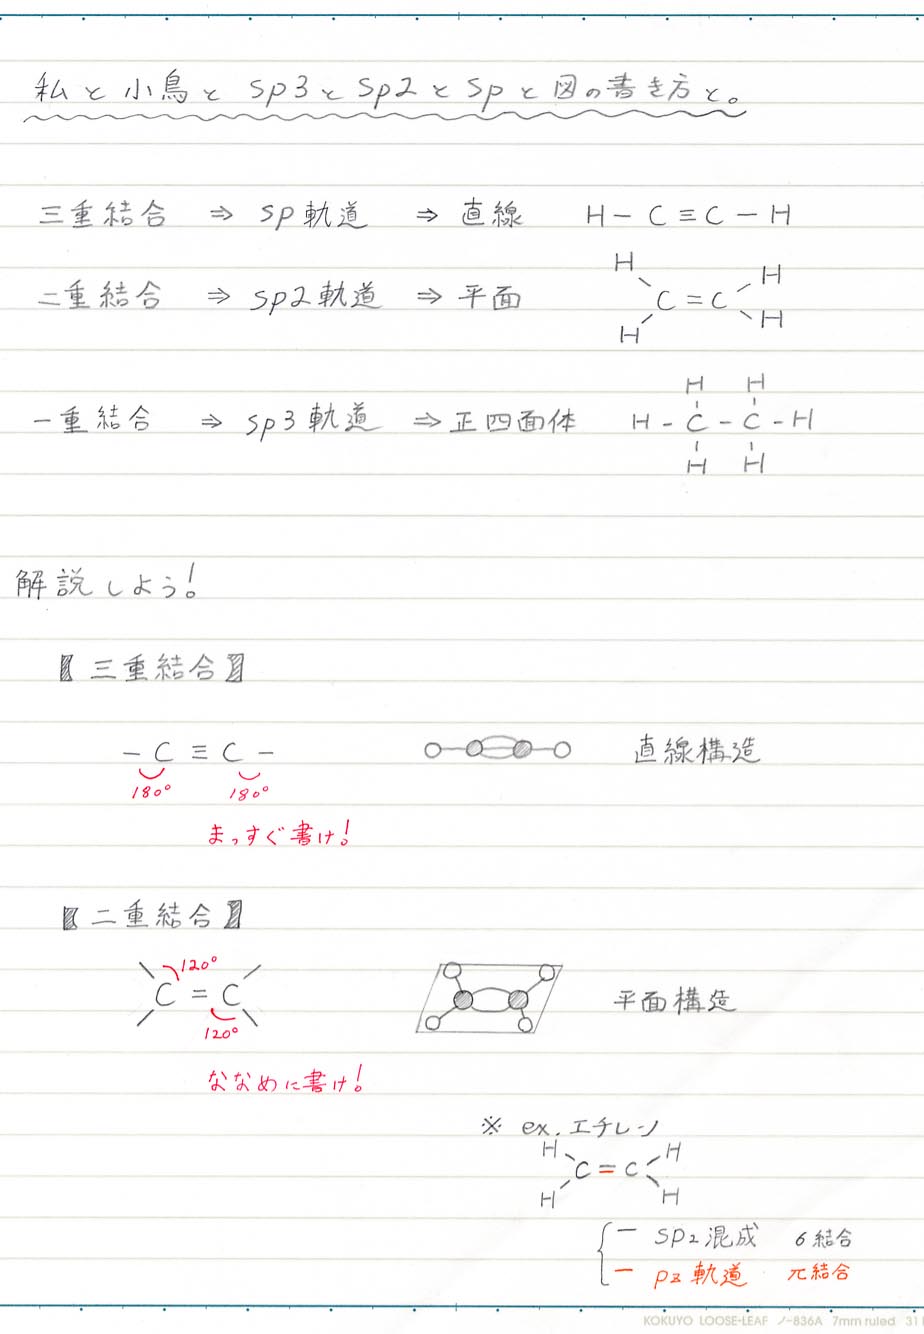 私と小鳥とsp3とsp2とspと図の書き方と。
三重結合 ⇒ sp軌道 ⇒ 直線 H－C≡C－H
H H
二重結合 ⇒ sp2軌道 ⇒ 平面 C＝C
H H
H H
一重結合 ⇒ sp3軌道 ⇒ 正四面体 H－C－C－H
H H
解説しよう!
【三重結合】
－C≡C－ 直線構造
180° 180°
まっすぐ書け!
【二重結合】
120°
C＝C 平面構造
120°
ななめに書け!
※ ex. エチレン
H H
C＝C
H H
－ sp2混成 6結合
－ pz軌道 π結合
KOKUYO LOOSE-LEAF ノ-836A 7mm ruled 31